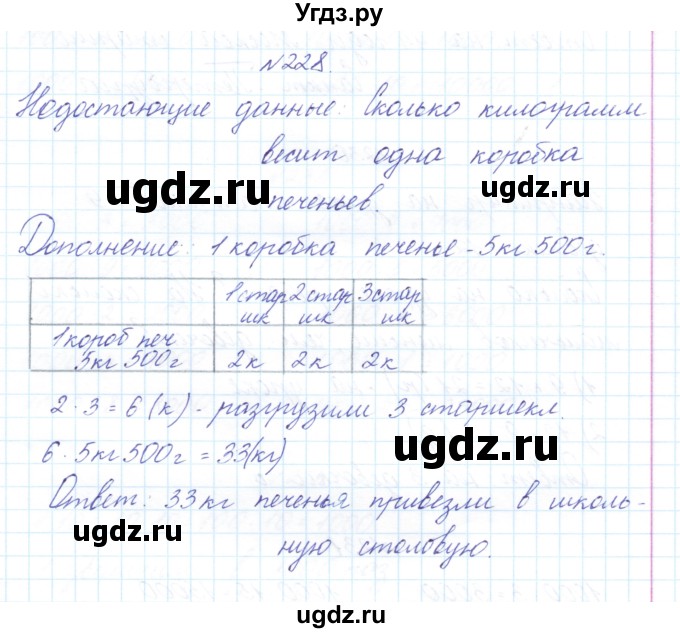 Угдз.ру
№228.
Недостающие данные: Сколько килограмм
весит одна коробка
печеньев.
Дополнение: 1 коробка печенье - 5кг 500г.
1 стар шк 2 стар шк 3 стар шк
1 короб печ 5кг 500г 2к 2к 2к
2 · 3 = 6 (к) - разгрузили 3 старшекл.
6 · 5кг 500г = 33(кг)
Ответ: 33 кг печенья привезли в школь-
ную столовую.
ugdz.ru
ugdz.ru
ugdz.ru
ugdz.ru
ugdz.ru
ugdz.ru